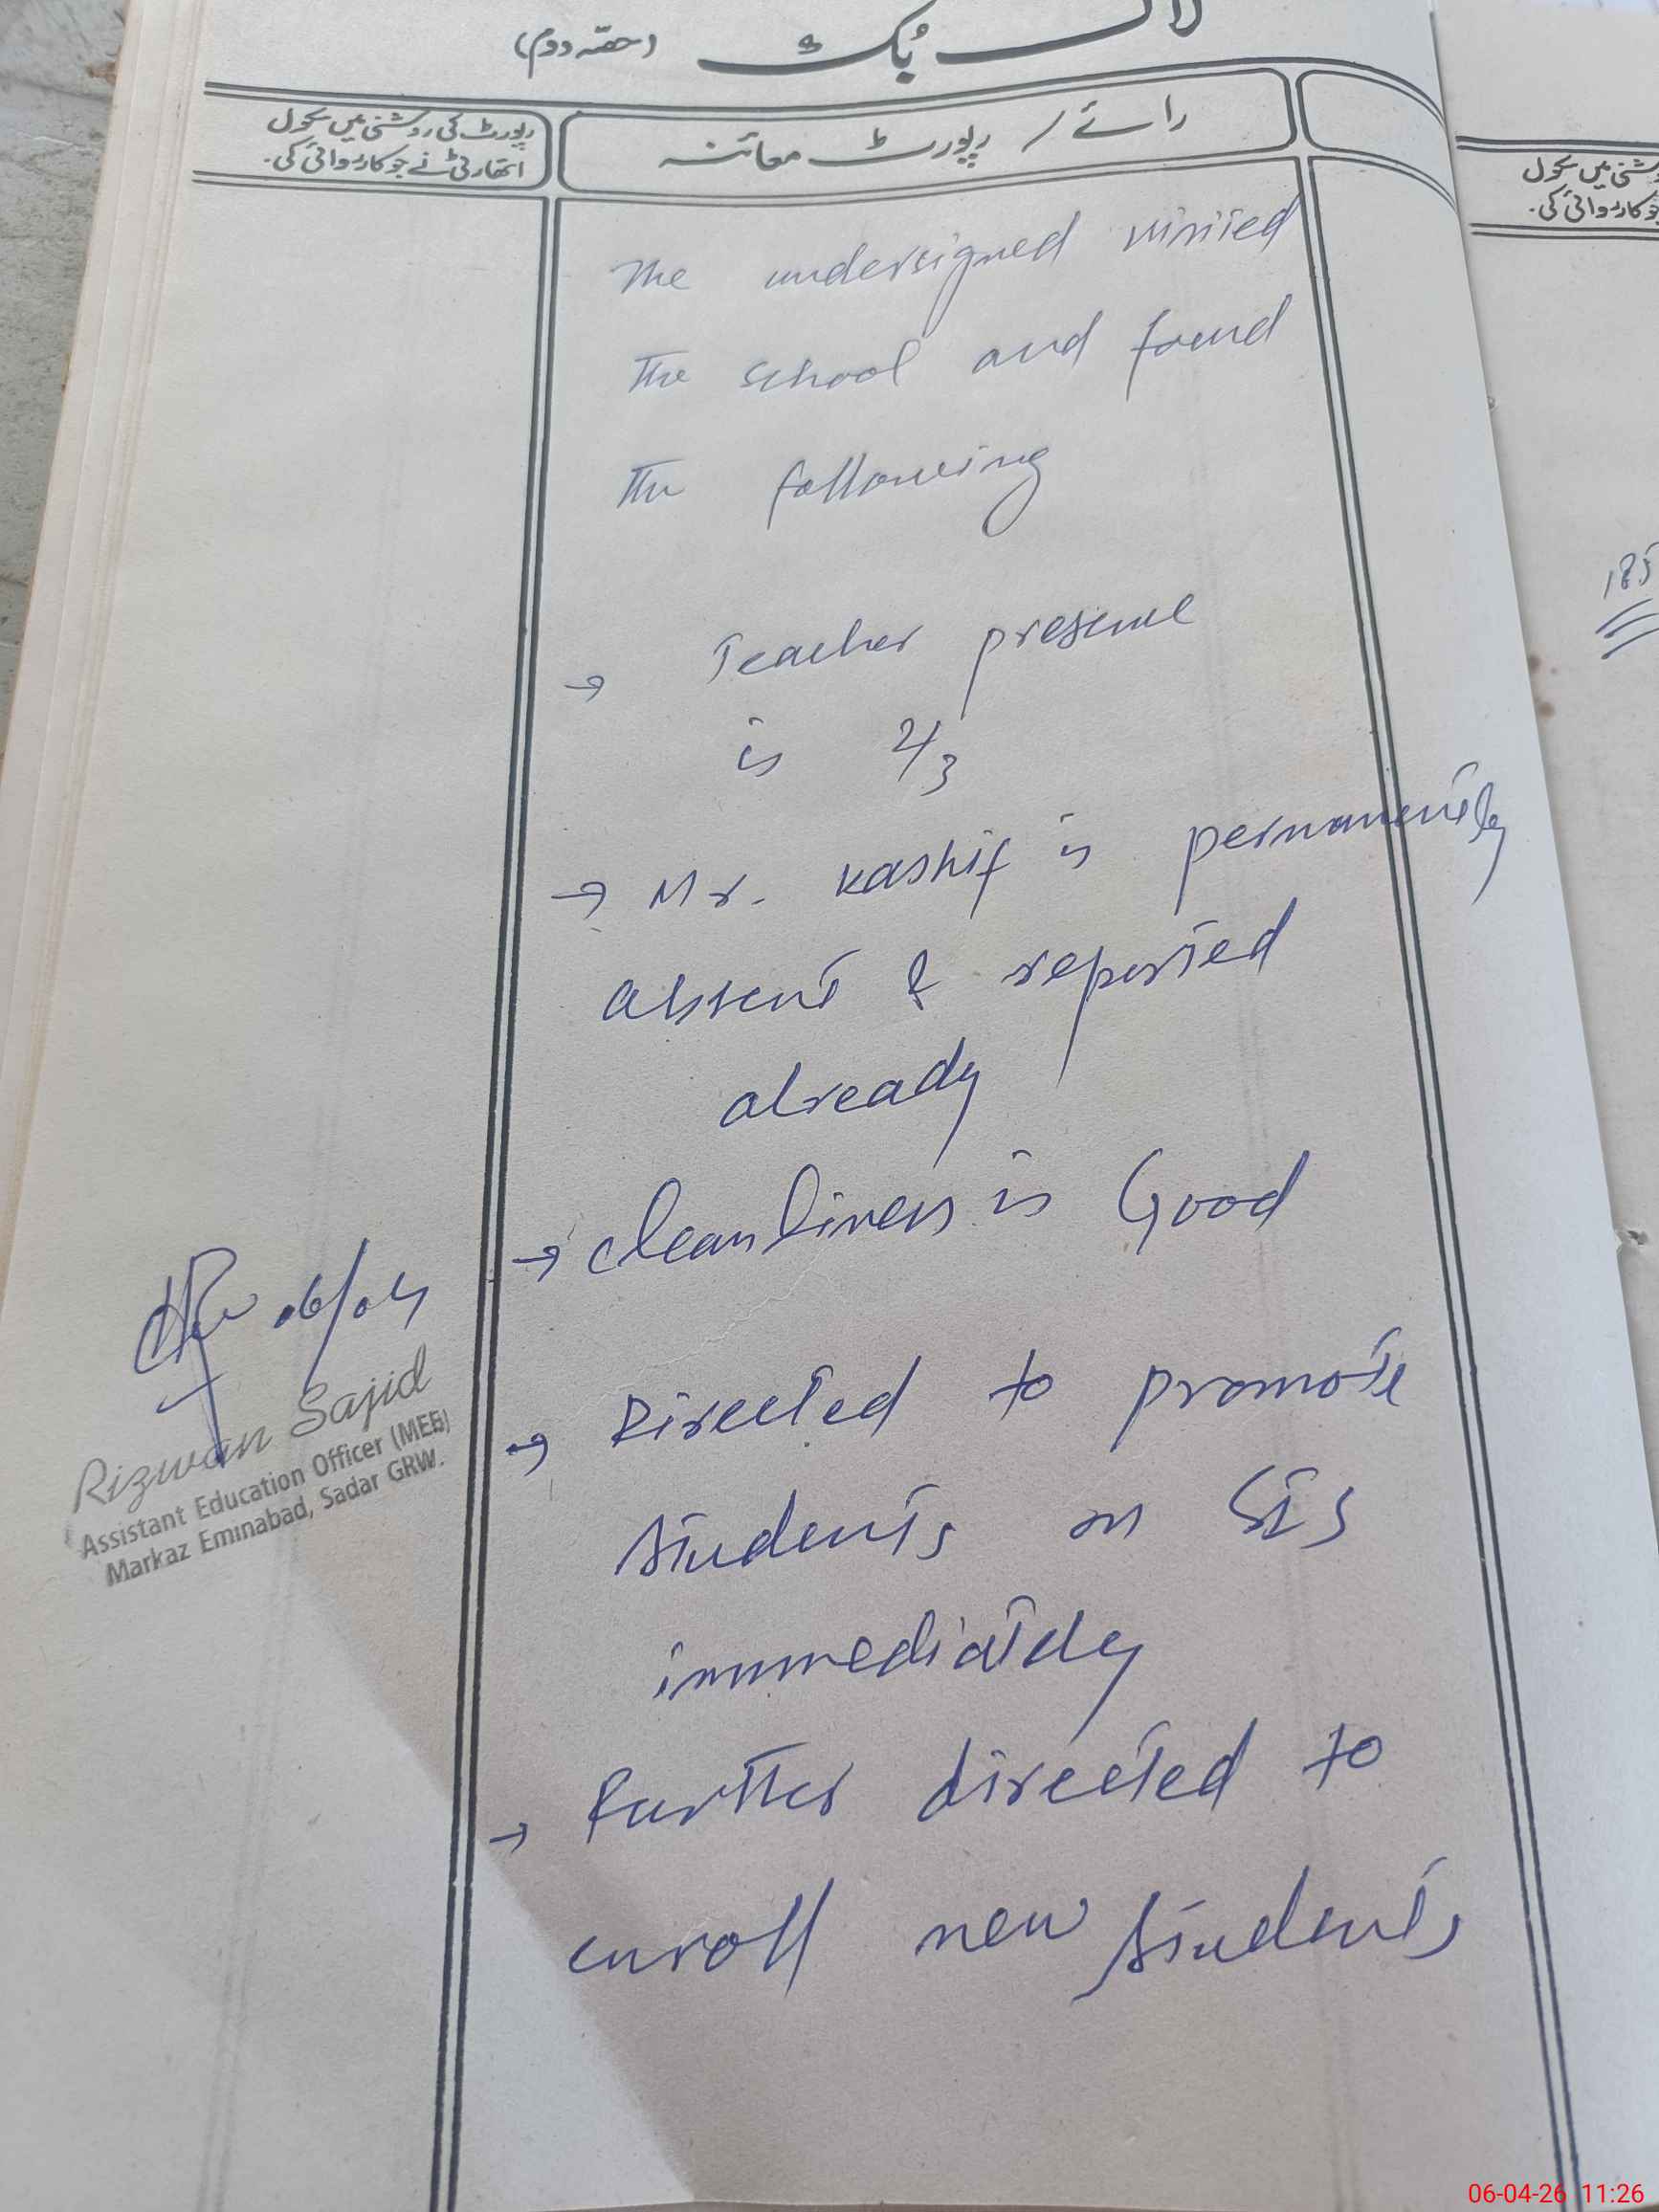 لاگ بُک (حصّہ دوم)
رائے / رپورٹ معائنہ
رپورٹ کی روشنی میں سکول
اتھارٹی نے جو کارروائی کی۔
The undersigned visited
The school and found
The following
→ Teacher present
is 2/3
→ Mr. Kashif is permanently
absent & reported
already
→ cleanliness is Good
→ Directed to promote
students on SIS
immediately
→ Further directed to
enroll new students
06/04
Rizwan Sajid
Assistant Education Officer (MEE)
Markaz Eminabad, Sadar GRW.
شنی میں سکول
جو کارروائی کی۔
185
06-04-26 11:26